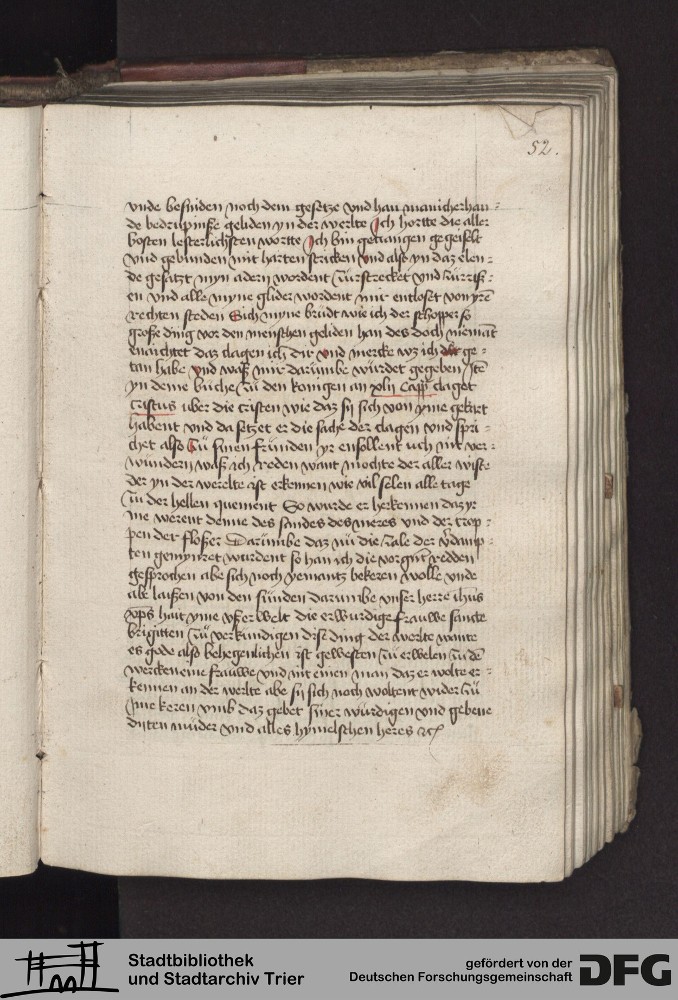 52.
vnde besniden noch dem gesetze vnd han manicherhan=
de bedrupnisse geliden yn der werlte Ich hortte die aller
bosten lesterlichsten wortte Ich bin gefangen gegeiselt
vnd gebunden mit harten stricken vnd also yn daz elen=
de gesatzt myn adern wordent zurstrecket vnd zurriss=
en vnd alle myne glider wordent mir entloset von yre
rechten steden Sich myne brudt wie ich der schopper so
grosse ding vor den menschen geliden han des doch niemant
enaichtet daz clagen ich dir vnd mercke wz ich dir ge=
tan habe vnd wass mir darumbe wurdet gegeben Jte
yn deme buche zu den konigen an xlij capp claget
cristus uber die cristen wie daz sij sich von yme gekert
habent vnd da setzet er die sache der clagen vnd spri=
chet also Zu sinen frunden yr ensollent uch nit ver=
wundern wass ich reden want mochte der aller wiste
der yn der werelte ist erkennen wie vil selen alle tage
zu der hellen quement So wurde er herkennen daz yr
me werent denne des sandes des meres vnd der trop=
pen der flosser Darumbe daz nu die zale der vdamp=
ten gemynret wurdent so han ich die vorgnt redden
gesprochen abe sich noch yemantz bekeren wolle vnde
abe laissen von den sunden darumbe vnser herre ihus
xps hait yme vsserwelt die erwurdige frauwe sancte
brigitten zu verkundigen dise ding der werlte wante
es gode also behegenlichen ist gewesten zu erwelen zu de
wercken eine frauwe vnd nit einen man daz er wolte er=
kennen an der werlte abe sij sich noch woltent wider zu
yme keren vmb daz gebet siner wurdigen vnd gebene
diiten muder vnd alles hymelschen heres etc
Stadtbibliothek
und Stadtarchiv Trier
gefördert von der
Deutschen Forschungsgemeinschaft
DFG